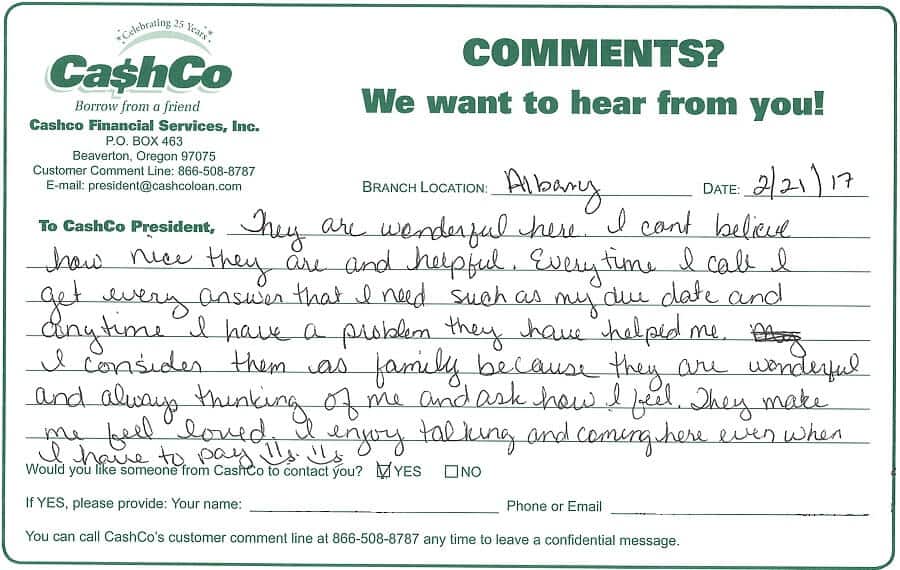 Celebrating 25 Years
Ca$hCo
Borrow from a friend
Cashco Financial Services, Inc.
P.O. BOX 463
Beaverton, Oregon 97075
Customer Comment Line: 866-508-8787
E-mail: president@cashcoloan.com
COMMENTS?
We want to hear from you!
BRANCH LOCATION: Albany DATE: 2/21/17
To CashCo President, They are wonderful here. I cant believe
how nice they are and helpful. Everytime I call I
get every answer that I need such as my due date and
anytime I have a problem they have helped me.
I consider them as family because they are wonderful
and always thinking of me and ask how I feel. They make
me feel loved. I enjoy talking and coming here even when
I have to pay
Would you like someone from CashCo to contact you? YES NO
If YES, please provide: Your name: Phone or Email
You can call CashCo's customer comment line at 866-508-8787 any time to leave a confidential message.